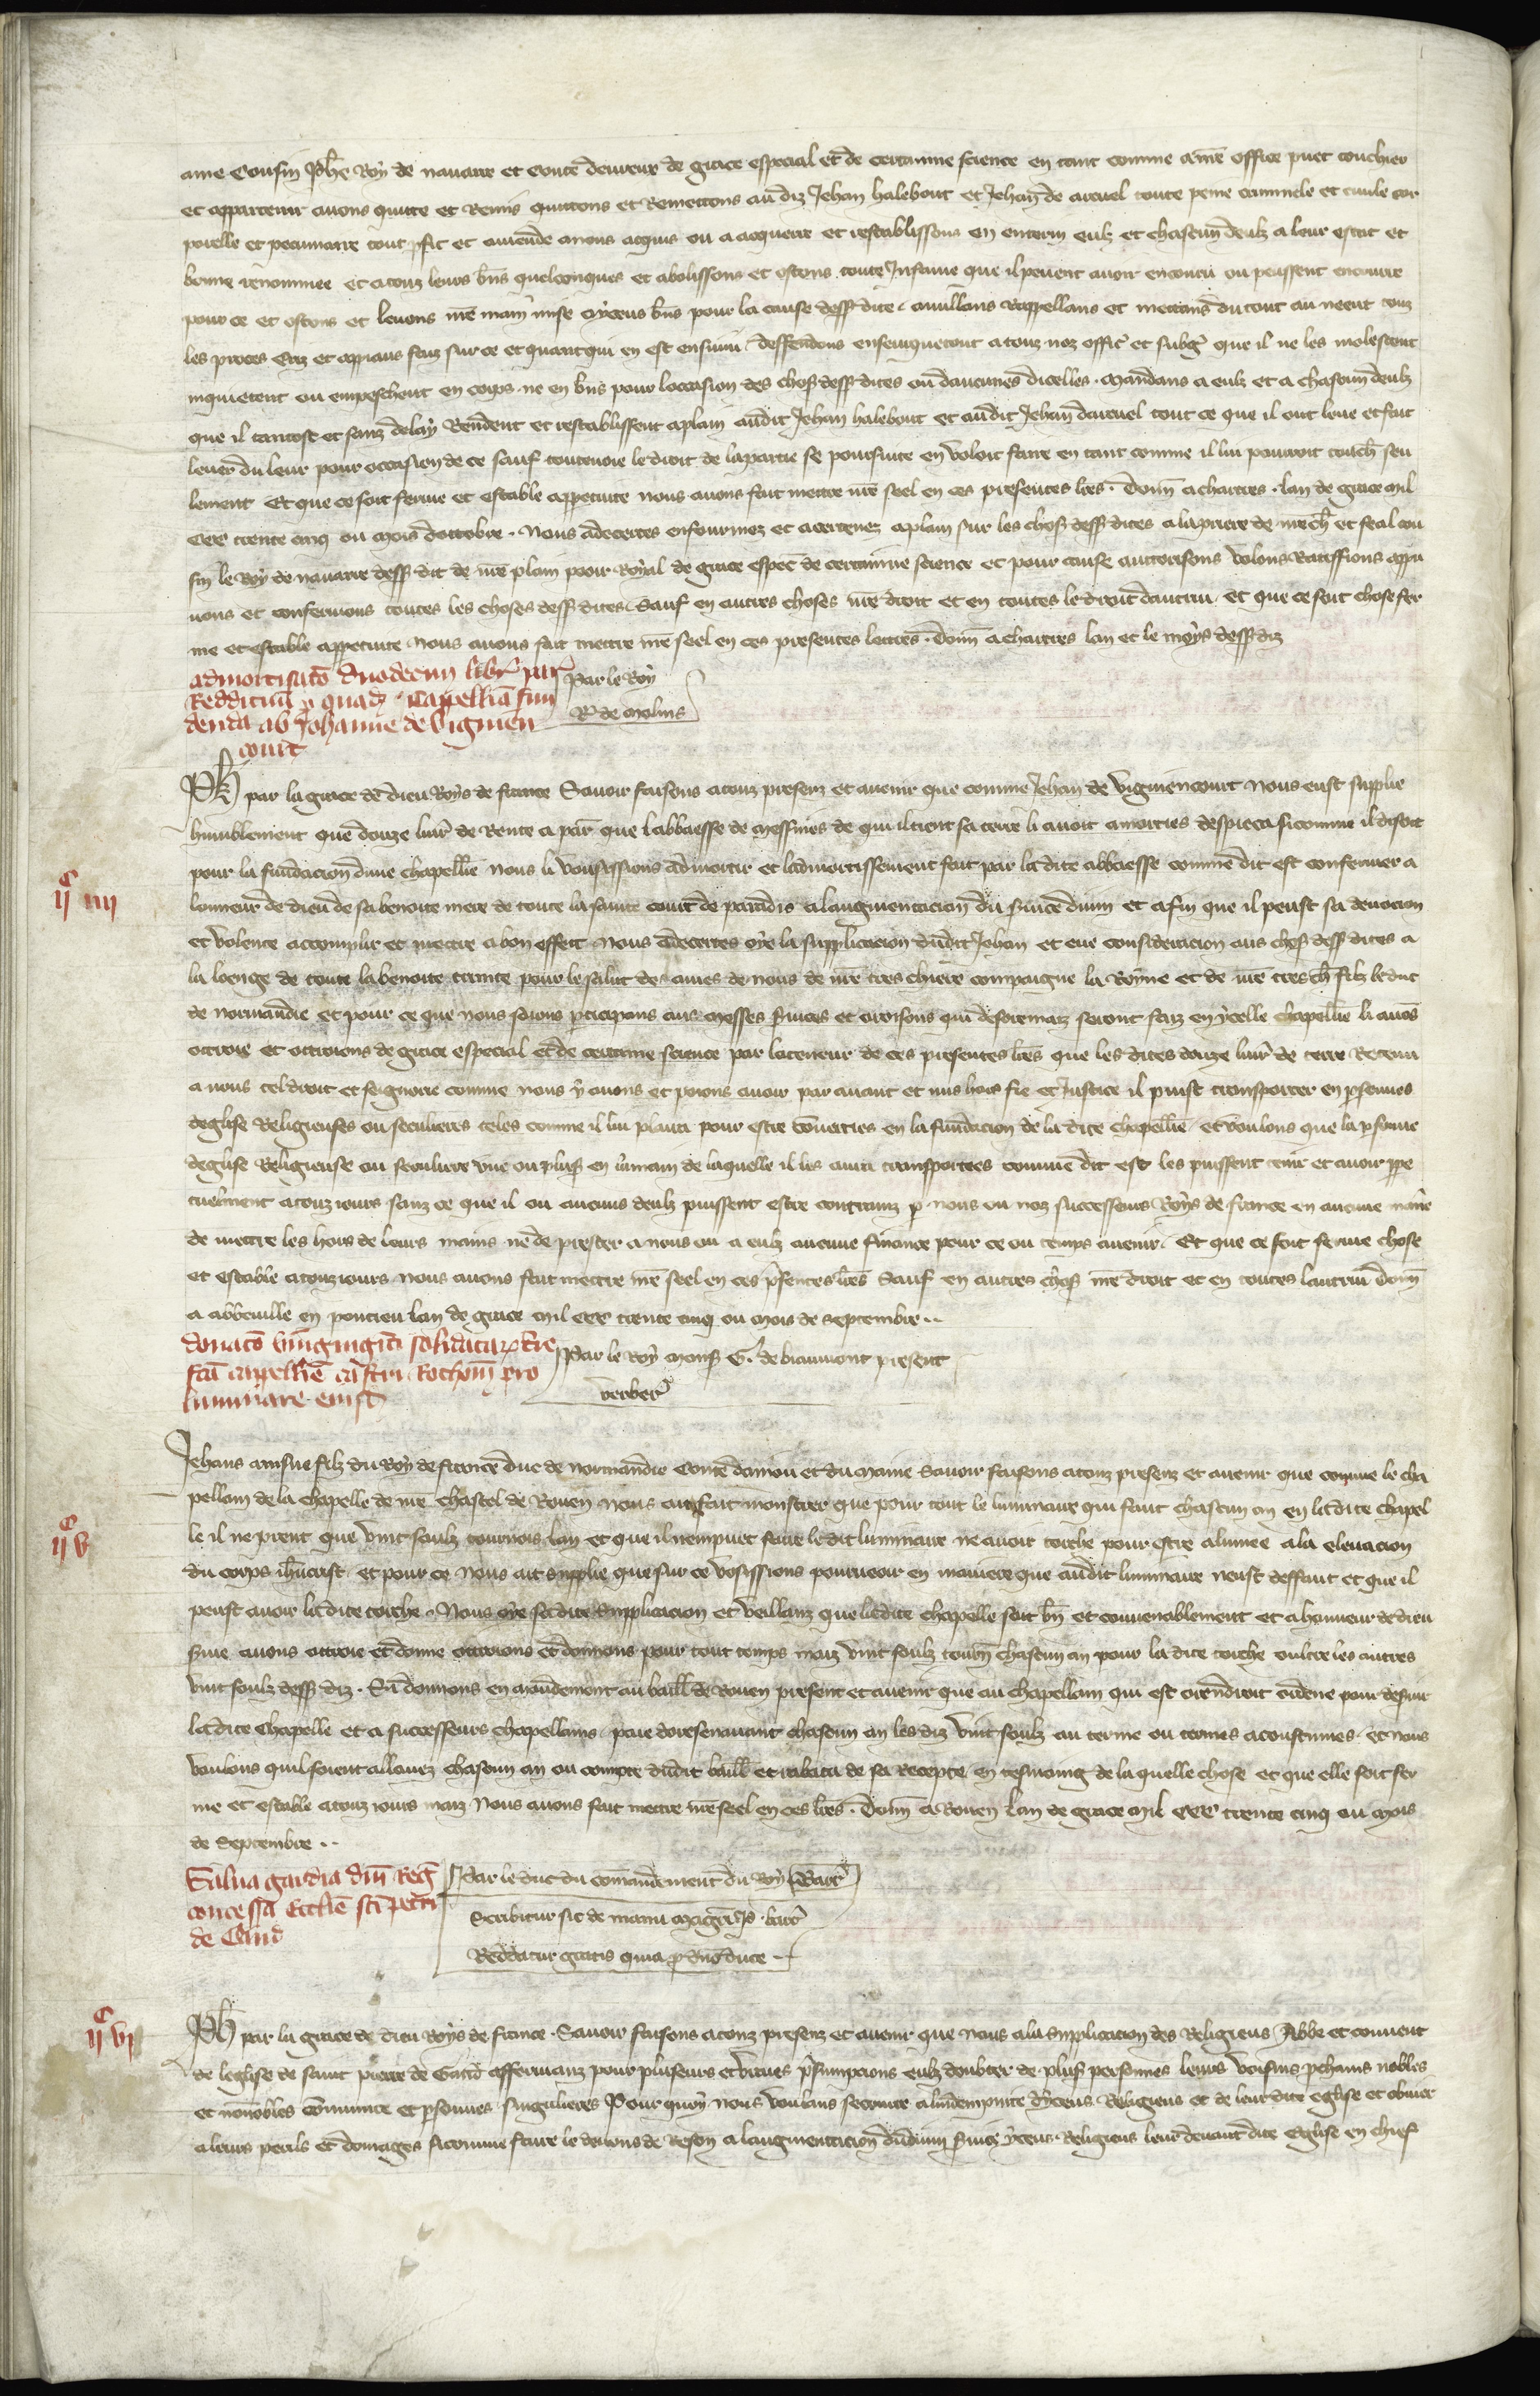 ame Cousin Phe Roy de navarre et Conte devreux de grace especial et de certainne science en tant comme a nre office puet touchier
et appartenir avons quitte et Remis quittons et Remettons au diz Jehan halebout et Jehan de arcuel toute peine criminele et civile cor
porelle et peccuniaire tout et amende a nous acquis ou a acquerre et restablissons en enterin eulz et chascun deulz a leur estat et
bonne renommee et a touz leurs bns quelconques et abolissons et ostons toute Infame que il pevent avoir encouru ou peussent encourre
pour ce et ostons et levons nre main mise a yceus bns pour la cause dess dite anullans Rappellans et mettans du tout au neent touz
les proces Erz et appiaus faiz sur ce et quanque qui en est ensuivi deffendons enseurquetout a touz noz offic et subg que il ne les molestent
inquietent ou empeschent en corps ne en bns pour loccasion des chos dess dites ou daucunes dicelles mandans a eulz et a chascun deulz
que il tantost et sanz delay Rendent et restablissent a plain au dit Jehan halebout et au dit Jehan darcuel tout ce que il ont leve et fait
lever du leur pour occasion de ce sauf toutevoie le droit de la partie se poursuite en voloit faire en tant comme il lui pourroit touch seu
lement Et que ce soit ferme et estable a perpetuite nous avons fait mettre nre seel en ces presentes lres donn a chartres lan de grace mil
CCC trente cinq ou mois doctobre Nous adecertes enfourmez et acertenez a plain sur les chos dess dites a la priere de nre ch et feal cou
sin le Roy de navarre dess dit de nre plain pooir Royal de grace espec de certainne science et pour cause auctorisons volons Ratiffions appu
vons et confermons toutes les choses dess dites Sauf en autres choses nre droit et en toutes le droit dautrui et que ce soit chose fer
me et estable a perpetuite nous avons fait mettre nre seel en ces presentes lettres donn a chartres lan et le moys dess diz
admortisato duodecim libr par
Reddituu p quad Cappellia fun
denda ab Johanne de vignien
court
Par le Roy
R de molins
ii c iiii
Ph par la grace de dieu Roys de france Savoir faisons a touz presenz et avenir que comme Jehan de vigniencourt nous eust supplie
humblement que douze livr de Rente a par que labbaesse de messines de qui il tient sa terre li avoit amorties despieca si comme il disoit
pour la fundacion dune chapellie nous li vousissions admortir et ladmortissement fait par la dite abbaesse comme dit est confermer a
lonneur de dieu de sa benoite mere de toute la sainte court de paradis a laugmentacion du service divin et a fin que il peust sa devocion
et volente accomplir et mettre a bon effect Nous adecertes oye la supplicacion du dit Jehan et eue consideracion aus chos dess dites a
la loenge de toute la benoite trinite pour le salut de ames de nous de nre tres chiere compaigne la Royne et de nre tres ch filz le duc
de normandie et pour ce que nous soions pticipans aus messes svices et oroisons qui desoremaiz seront faiz en ycelle chapellie li avos
ottroie et ottroions de grace especial et de certaine science par la teneur de ces presentes lres que les dites douze livr de terre Retenu
a nous tel droit et seignorie comme nous y avons et poions avoir par avant et mis hors fie et Justice il puist transporter en psonnes
deglise Religieuses ou seculieres teles comme il lui plaira pour estre converties en la fundacion de la dite chapellie et voulons que la psonne
deglise Religieuse ou seculiere une ou plus en la main de laquelle il les aura transportees comme dit est les puissent tenir et avoir ppe
tuelment a touz iours sanz ce que il ou aucuns deulz puissent estre contrainz p nous ou noz successeurs Roys de france en aucune manre
de mettre les hors de leurs mains ne de prester a nous ou a eulz aucune finance pour ce ou temps avenir Et que ce soit ferme chose
et estable a touz iours nous avons fait mettre nre seel en ces psentes lres Sauf en autres chos nre droit et en toutes lautrui donn
a abbeville en pontieu lan de grace mil CCC trente cinq ou mois de septembre
donato viginti solidatar tre
fca capelle castri Rothom pro
luminare eiusd
Par le Roy mons G. de biaumont present
verber
ii c v
Jehans ainsne filz du Roy de france duc de normandie Conte danjou et du maine Savoir faisons a touz presenz et avenir que comme le cha
pellain de la chapelle de nre chastel de Rouen nous ait fait monstrer que pour tout le luminaire qui faut chascun an en la dite chapel
le il ne prent que vint soulz tournois lan et que il nempuet faire le dit luminaire ne avoir torche pour estre alumee a la elevacion
du corps ihucrist et pour ce nous ait supplie que sur ce vosissions pourveoir en maniere que au dit luminaire neust deffaut et que il
peust avoir la dite torche Nous oye sa dite supplicacion et veillanz que la dite chapelle soit bn et convenablement et a honneur de dieu
svie avons ottroie et donne ottroions et donnons pour tout temps maiz vint soulz tourn chascun an pour la dite torche oultre les autres
vint soulz dess diz Si donnons en mandement au baill de Rouen present et avenir que au chapellain qui est orendroit ordene pour desvir
la dite chapelle et a successeurs chapellains paie doresenavant chascun an les diz vint soulz au terme ou termes acoustumes et nous
voulons quil soient allouez chascun an ou compte du dit baill et rabatu de sa Recepte en tesmoing de la quelle chose et que elle soit fer
me et estable a touz iours maiz Nous avons fait mettre nre seel en ces lres Donn a Rouen lan de grace mil CCC trente cinq ou mois
de Septembre
Salva gardia dni Reg
concessa Ecclie sci petri
de Gand
Par le duc du comandement du Roy Barr
Scribitur sic de manu magri Jo. barr
Reddatur gratis quia p dno duce
ii c vi
Ph par la grace de dieu Roys de france Savoir faisons a touz presenz et avenir que nous a la supplicacion des Religieus Abbe et convent
de leglise de saint pierre de Gand affermanz pour pluseurs et vraies psumpcions eulz doubter de plus personnes leurs voisins pchains nobles
et nonnobles commune et psonnes singulieres Pour quoy nous voulans secourre a lindempnite dyceus Religieus et de leur dite eglise et obvier
a leurs perils et domages si comme faire le devons de Reson a laugmentacion du divin svice yceus Religieus leur devant dite Eglise en chief